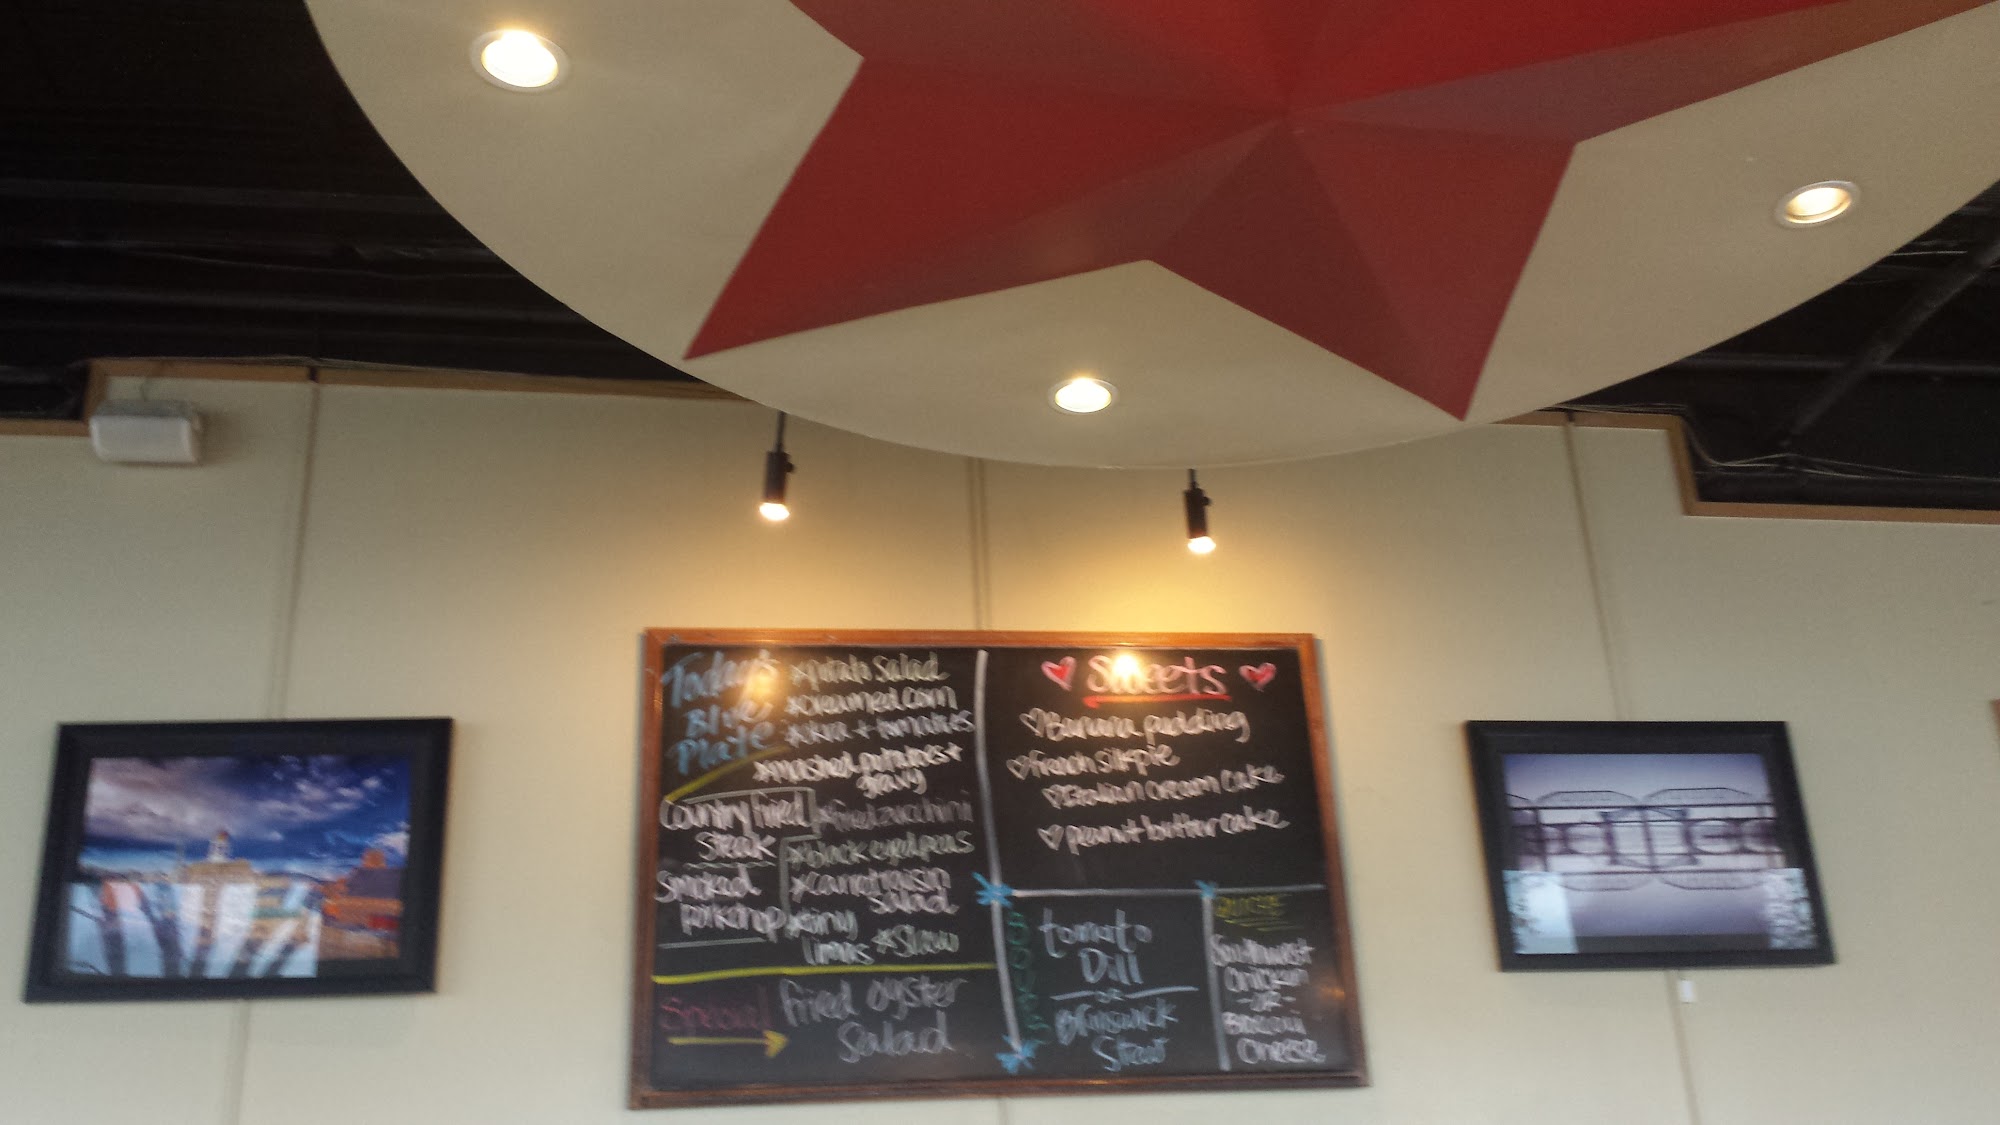 Today's
Blue
Plate
*potato salad
*creamed corn
*okra + tomatoes
*mashed potatoes +
gravy
Country Fried
Steak
Smoked
porkchop
*fried zucchini
*black eyed peas
*carrot raisin
salad
limas *slaw
Special
fried oyster
salad
Sweets
Banana pudding
french silk pie
Italian cream cake
peanut butter cake
SOUPS
tomato
Dill
or
Brunswick
Stew
QUICHE
Southwest
Chicken
or
Broccoli
Cheese